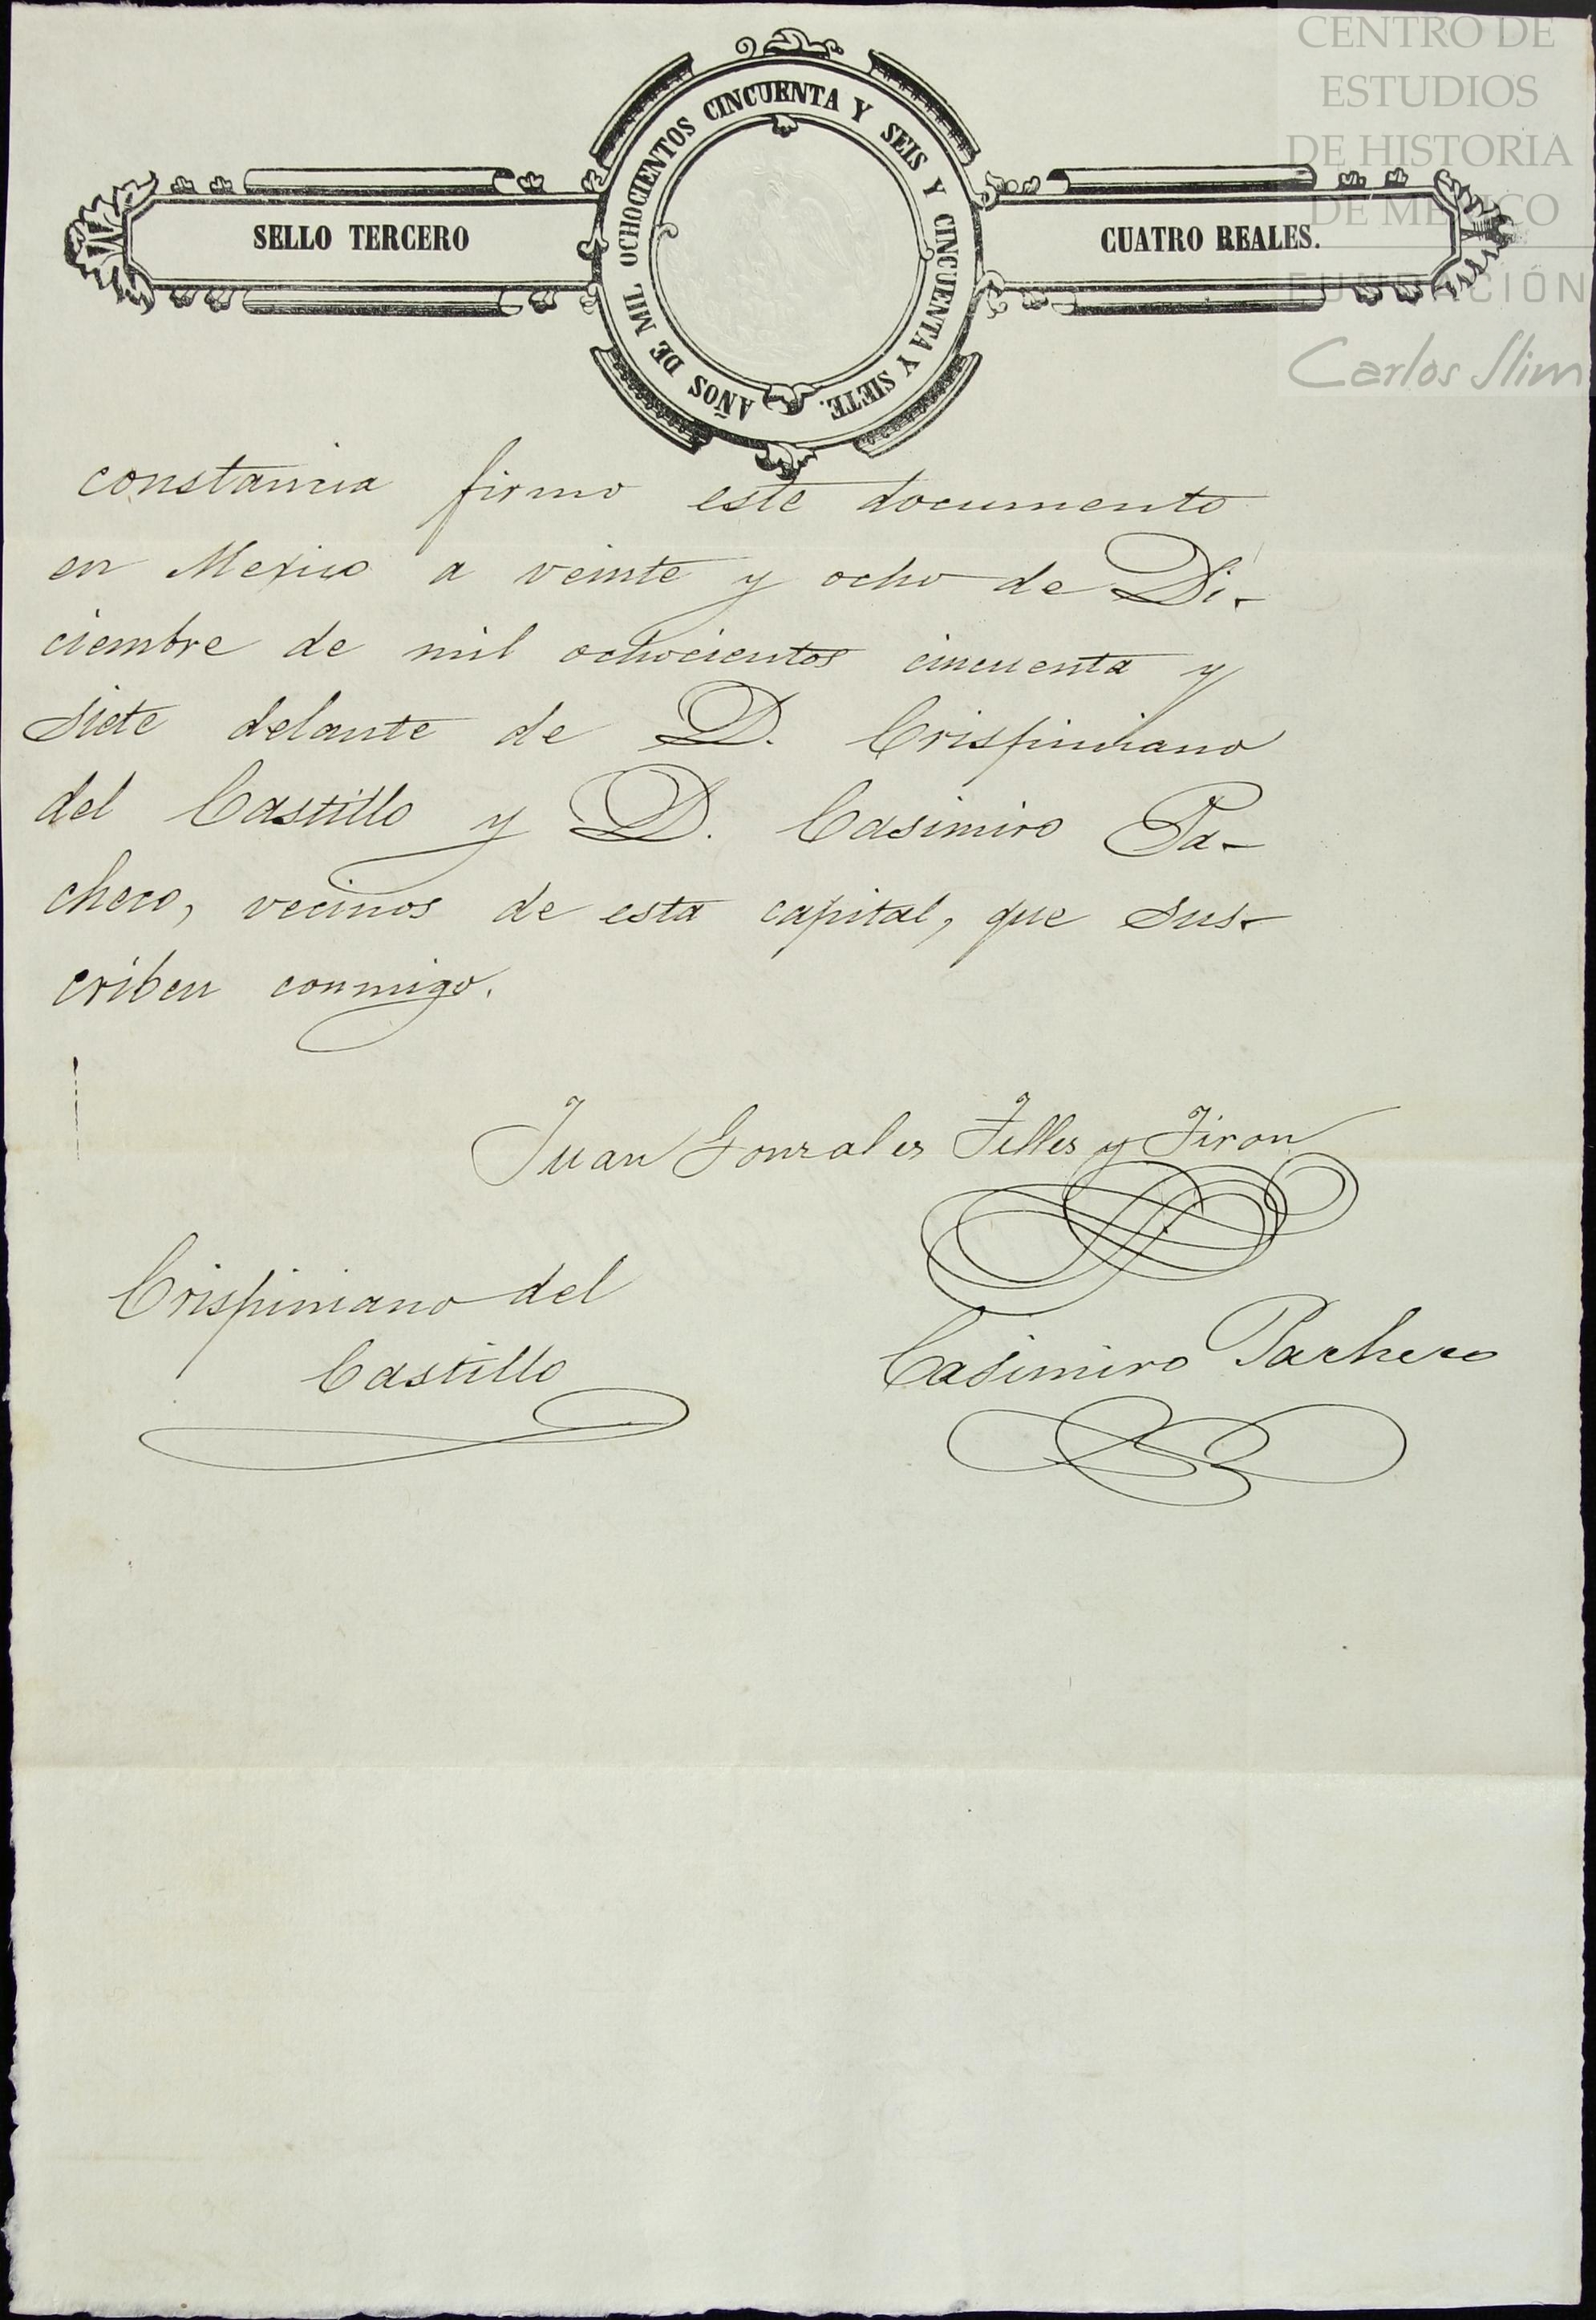 CENTRO DE
ESTUDIOS
DE HISTORIA
DE MÉXICO
FUNDACIÓN
Carlos Slim
SELLO TERCERO
AÑOS DE MIL OCHOCIENTOS CINCUENTA Y SEIS Y CINCUENTA Y SIETE.
CUATRO REALES.
constancia firmo este documento
en Mexico a veinte y ocho de Di-
ciembre de mil ochocientos cincuenta y
siete delante de D. Crispiniano
del Castillo y D. Casimiro Pa-
checo, vecinos de esta capital, que sus-
criben conmigo.
Juan Gonzales Telles y Jiron
Crispiniano del
Castillo
Casimiro Pacheco